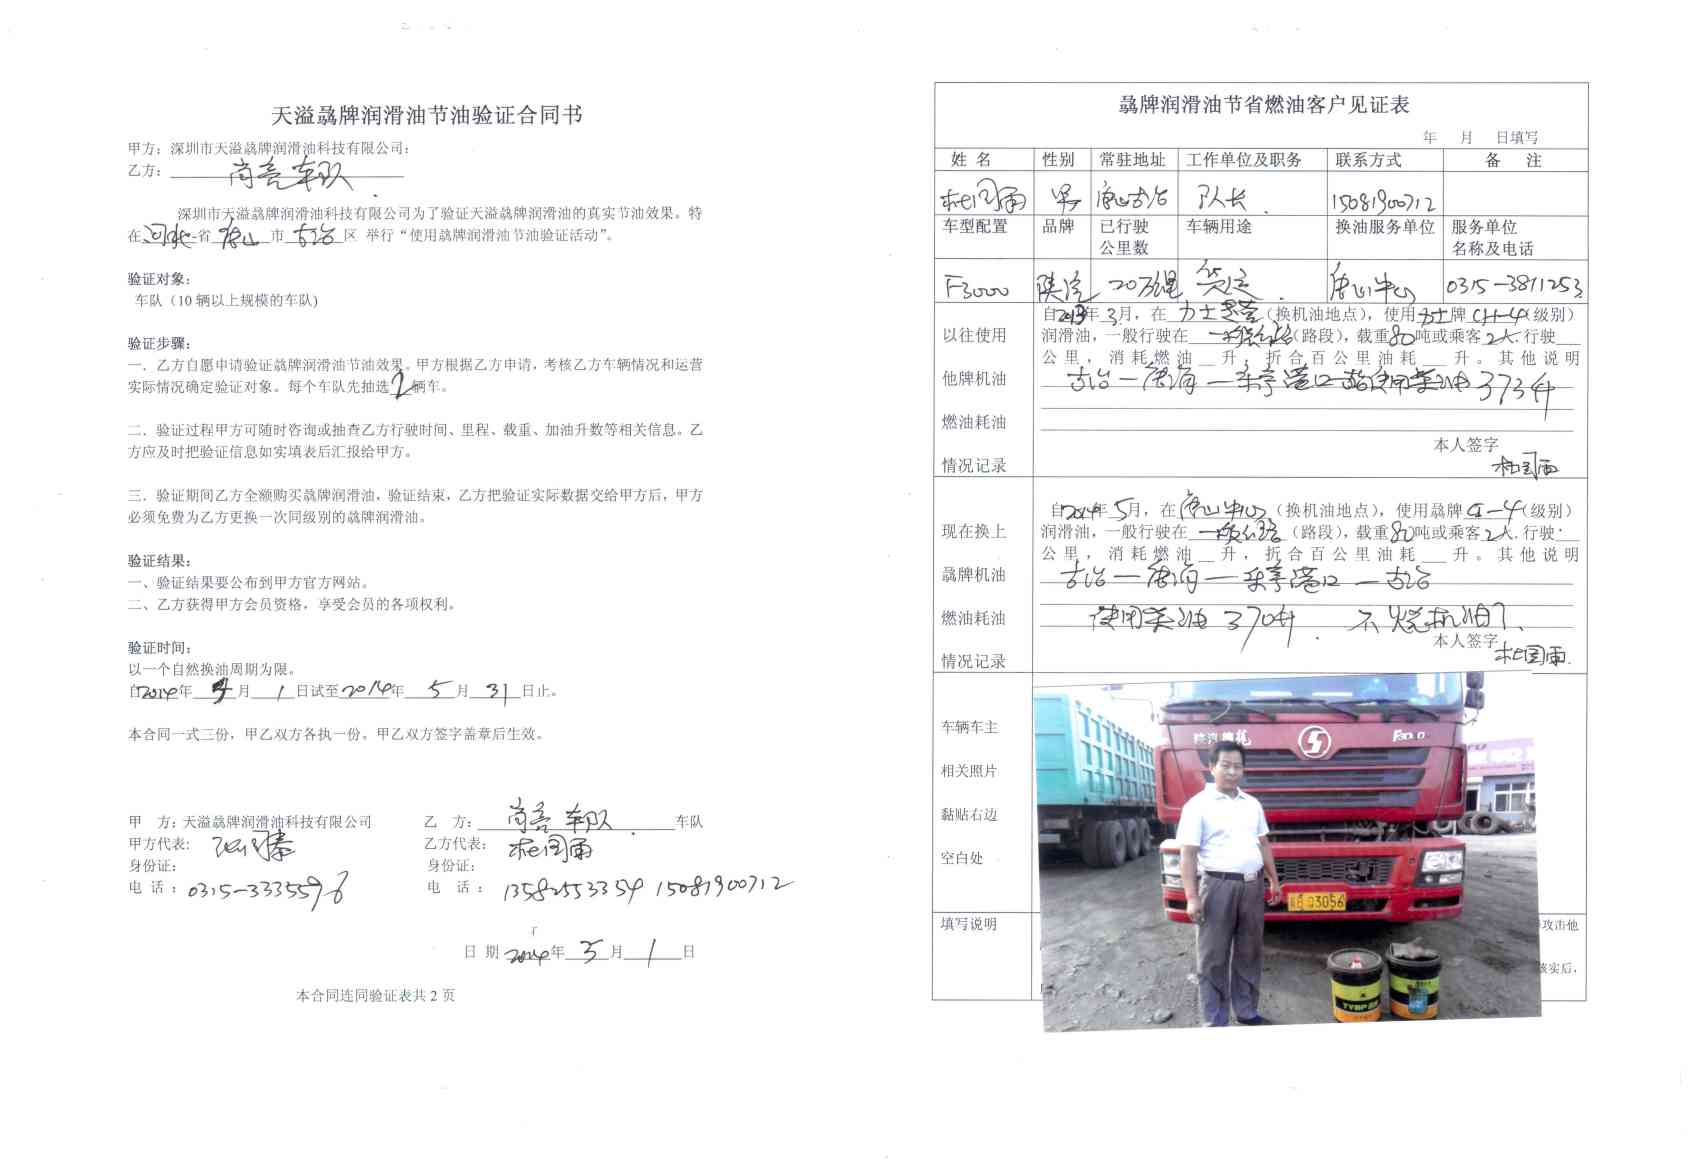 天溢骉牌润滑油节油验证合同书
甲方：深圳市天溢骉牌润滑油科技有限公司：
乙方：尚亮车队
深圳市天溢骉牌润滑油科技有限公司为了验证天溢骉牌润滑油的真实节油效果。特
在河北省唐山市古冶区 举行“使用骉牌润滑油节油验证活动”。
验证对象：
车队（10 辆以上规模的车队)
验证步骤：
一．乙方自愿申请验证骉牌润滑油节油效果。甲方根据乙方申请，考核乙方车辆情况和运营
实际情况确定验证对象。每个车队先抽选2辆车。
二．验证过程甲方可随时咨询或抽查乙方行驶时间、里程、载重、加油升数等相关信息。乙
方应及时把验证信息如实填表后汇报给甲方。
三．验证期间乙方全额购买骉牌润滑油，验证结束，乙方把验证实际数据交给甲方后，甲方
必须免费为乙方更换一次同级别的骉牌润滑油。
验证结果：
一、验证结果要公布到甲方官方网站。
二、乙方获得甲方会员资格，享受会员的各项权利。
验证时间：
以一个自然换油周期为限。
自2014年 月1日试至2014年5月31日止。
本合同一式三份，甲乙双方各执一份。甲乙双方签字盖章后生效。
甲 方：天溢骉牌润滑油科技有限公司
甲方代表：
身份证：
电 话：0315-3335596
乙 方：尚亮车队 车队
乙方代表：杜国雨
身份证：
电 话：13582553354 15081900712
日 期 2014年3月1日
本合同连同验证表共 2 页
骉牌润滑油节省燃油客户见证表
年 月 日填写
姓 名 性别 常驻地址 工作单位及职务 联系方式 备 注
杜国雨 男 唐山古冶 队长 15081900712
车型配置 品牌 已行驶公里数 车辆用途 换油服务单位 服务单位名称及电话
F3000 陕汽 20万公里 货运 唐山中心 0315-3811253
以往使用
他牌机油
燃油耗油
情况记录
自2013年3月，在力士（换机油地点），使用力士牌CH-4(级别）
润滑油，一般行驶在一般公路(路段)，载重80吨或乘客2人.行驶
公里，消耗燃油 升，折合百公里油耗 升。其他说明
古冶—唐海—乐亭港口—古冶使用柴油373升
本人签字
杜国雨
现在换上
骉牌机油
燃油耗油
情况记录
自2014年5月，在唐山中心（换机油地点），使用骉牌CI-4(级别）
润滑油，一般行驶在一般公路（路段），载重80吨或乘客2人.行驶
公里，消耗燃油 升，折合百公里油耗 升。其他说明
古冶—唐海—乐亭港口—古冶
使用柴油370升. 不烧机油了.
本人签字
杜国雨.
车辆车主
相关照片
黏贴右边
空白处
陕汽德龙 F3000
3056
TYBP
填写说明
攻击他
核实后，